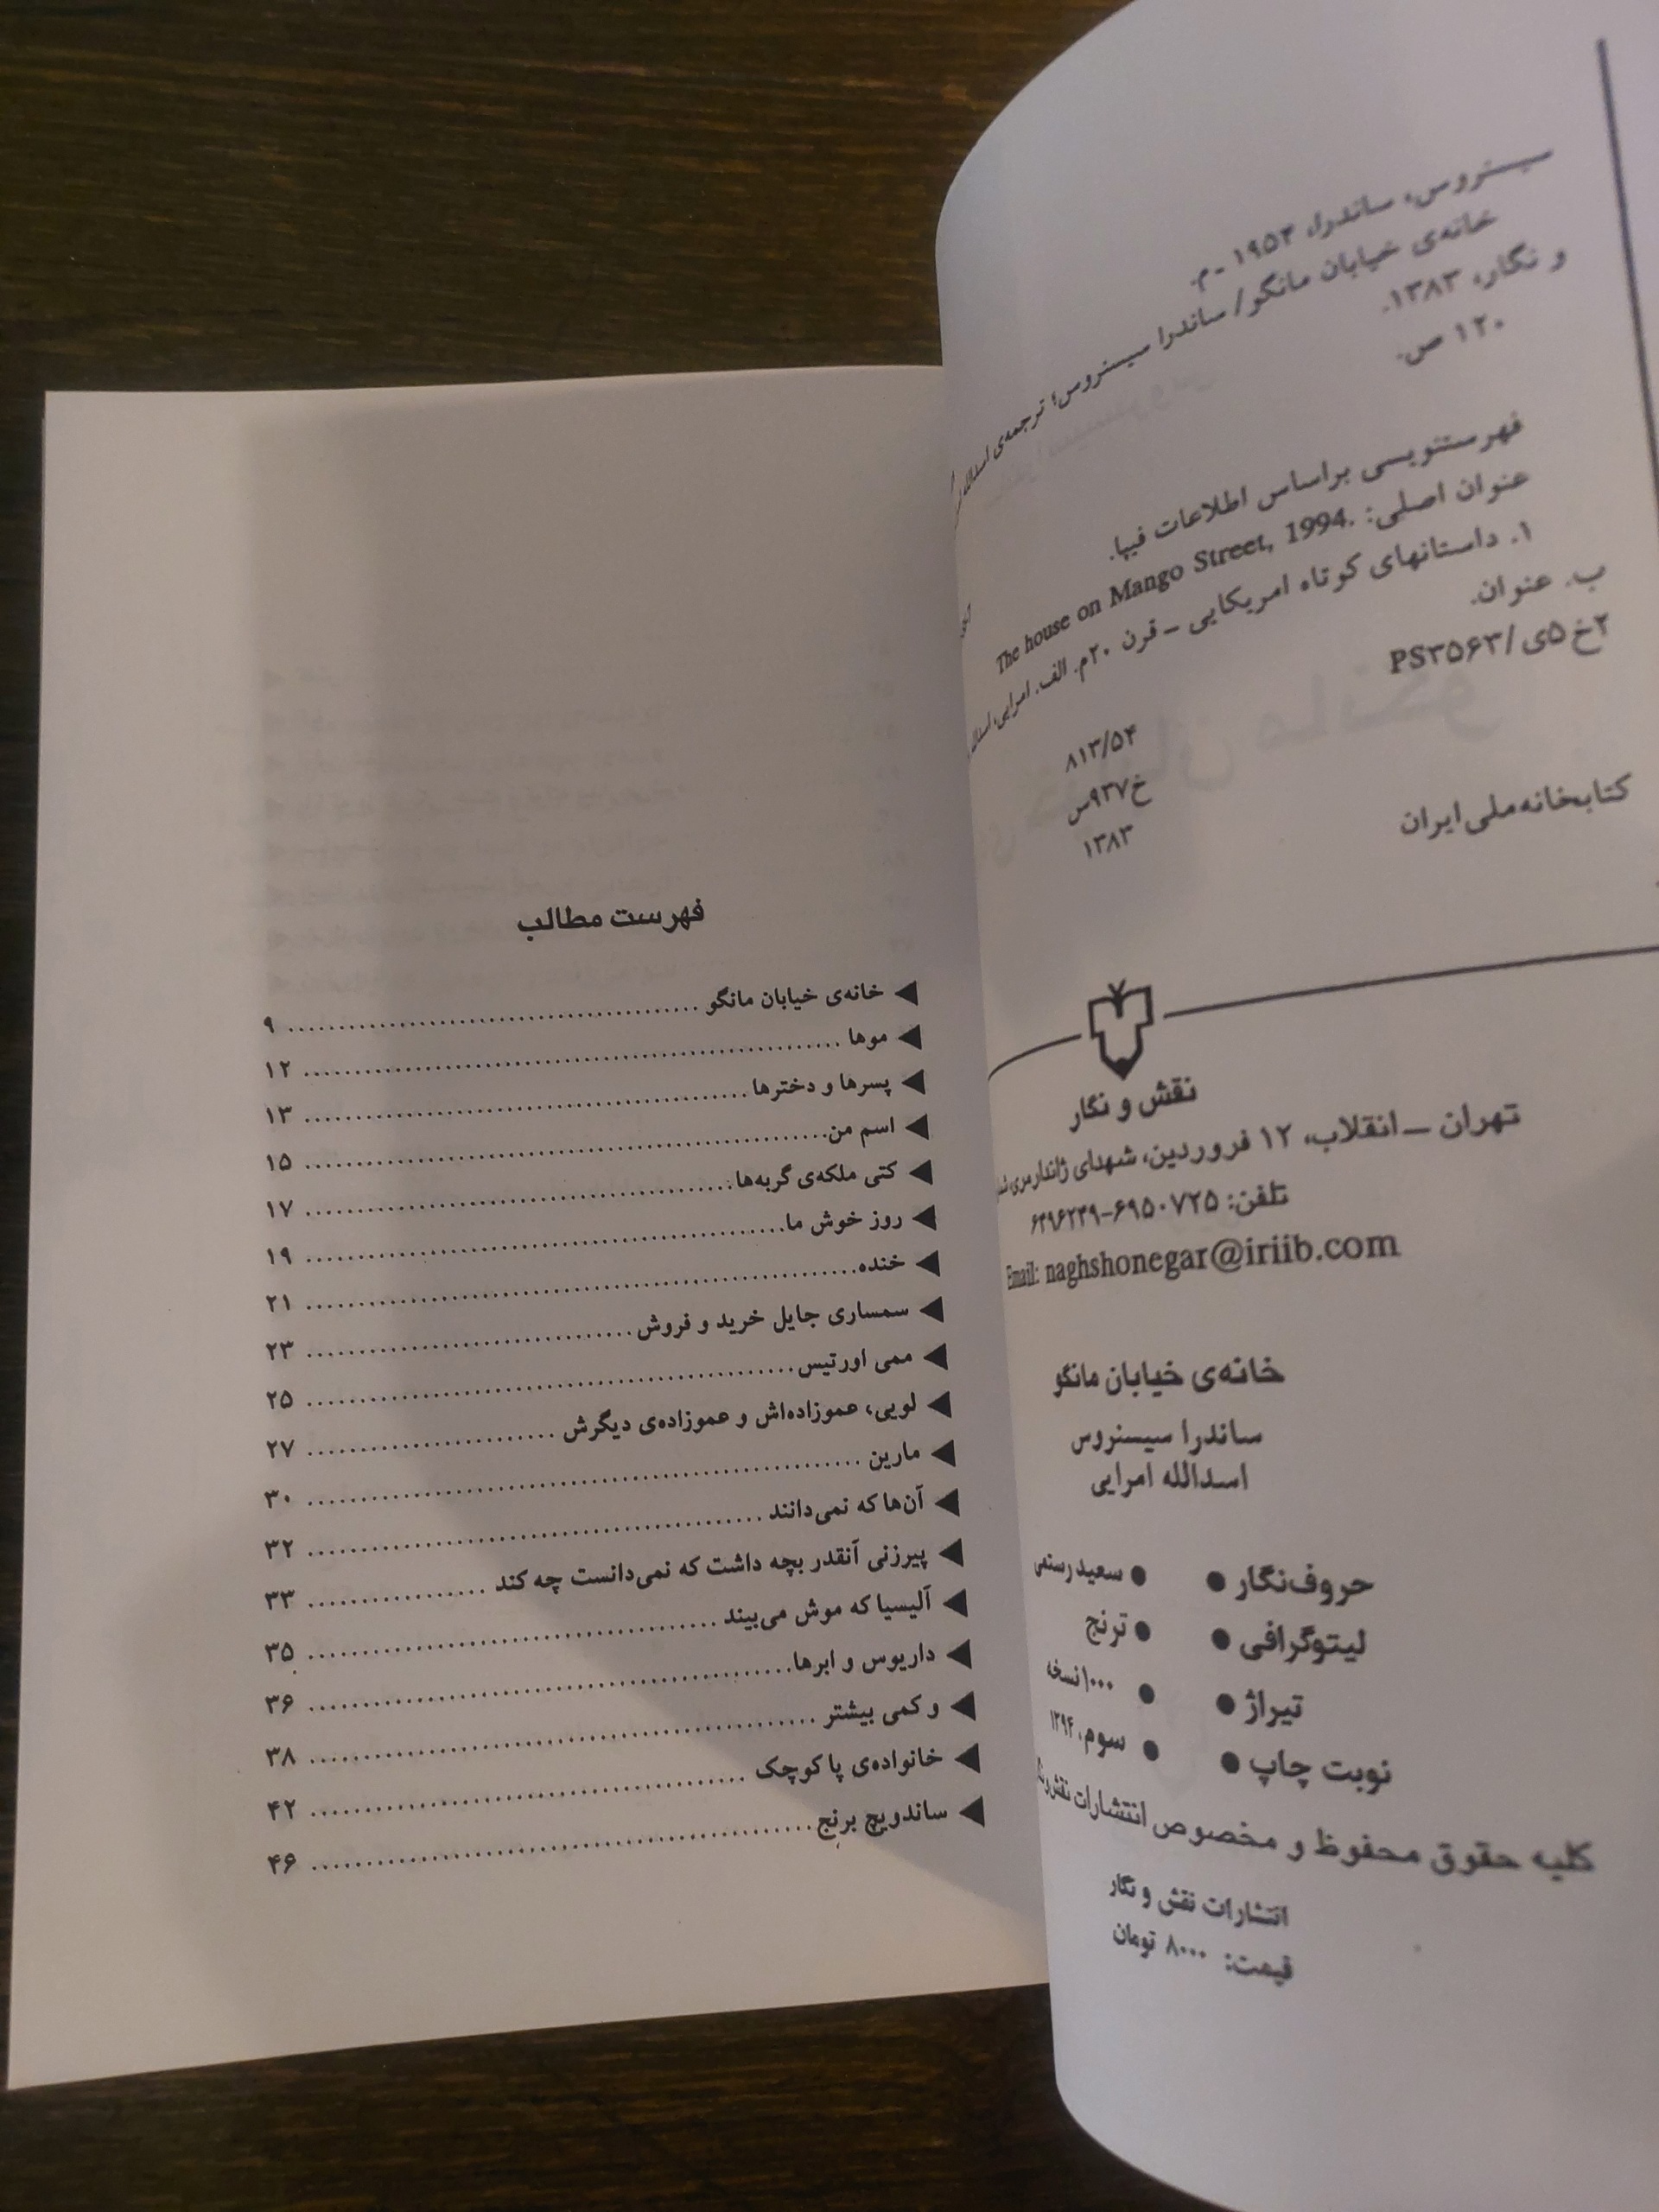 سیسنروس، ساندرا، ۱۹۵۴ - م.
خانه‌ی خیابان مانگو/ ساندرا سیسنروس؛ ترجمه‌ی اسدالله
و نگار، ۱۳۸۳.
۱۲۰ ص.
فهرستنویسی براساس اطلاعات فیپا.
عنوان اصلی:
The house on Mango Street, 1994.
۱. داستانهای کوتاه امریکایی - قرن ۲۰م. الف. امرایی،
ب. عنوان.
۲خ۵ی/PS۳۵۶۳
۸۱۳/۵۴
خ۹۳۷س
۱۳۸۳
کتابخانه ملی ایران
نقش و نگار
تهران - انقلاب، ۱۲ فروردین، شهدای ژاندارمری
تلفن: ۶۹۵۰۷۲۵-۶۴۹۶۲۴۹
Email: naghshonegar@iriib.com
خانه‌ی خیابان مانگو
ساندرا سیسنروس
اسدالله امرایی
حروف‌نگار ● ● سعید رستمی
لیتوگرافی ● ● ترنج
تیراژ ● ● ۱۰۰۰ نسخه
نوبت چاپ ● ● سوم، ۱۳۹۴
کلیه حقوق محفوظ و مخصوص انتشارات نقش و
انتشارات نقش و نگار
قیمت: ۸۰۰۰ تومان
فهرست مطالب
◀ خانه‌ی خیابان مانگو ........ ۹
◀ موها ........ ۱۲
◀ پسرها و دخترها ........ ۱۳
◀ اسم من ........ ۱۵
◀ کتی ملکه‌ی گربه‌ها ........ ۱۷
◀ روز خوش ما ........ ۱۹
◀ خنده ........ ۲۱
◀ سمساری جایل خرید و فروش ........ ۲۳
◀ ممی اورتیس ........ ۲۵
◀ لویی، عموزاده‌اش و عموزاده‌ی دیگرش ........ ۲۷
◀ مارین ........ ۳۰
◀ آن‌ها که نمی‌دانند ........ ۳۲
◀ پیرزنی آنقدر بچه داشت که نمی‌دانست چه کند ........ ۳۳
◀ آلیسیا که موش می‌بیند ........ ۳۵
◀ داریوس و ابرها ........ ۳۶
◀ و کمی بیشتر ........ ۳۸
◀ خانواده‌ی پا کوچک ........ ۴۲
◀ ساندویچ برنج ........ ۴۶